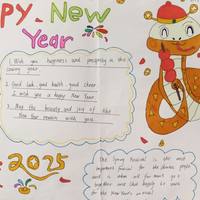 PY. New
Year
1. Wish you happiness and prosperity in the
coming year
2. Good luck, good health, good cheer.
I wish you a happy New Year.
3. May the beauty and joy of the
New Year remain with you
2025
The Spring Festival is the most
important festival for the Chinese people
and is when all family
together
for the New Year's